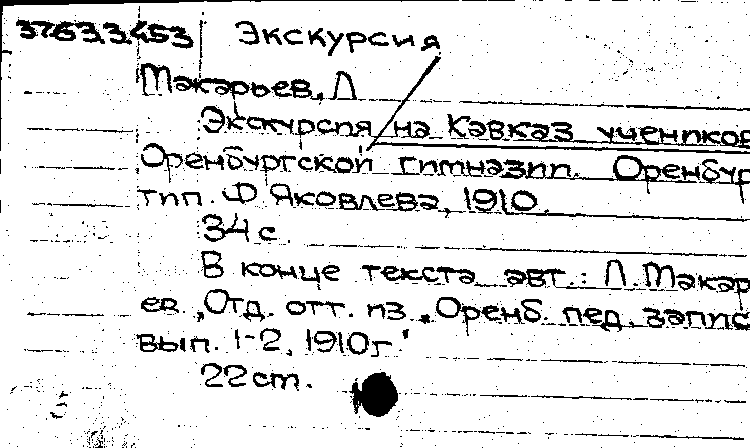 37.63.3.453 Экскурсия
Макарьев, Л
Экскурсия на Кавказ учеников
Оренбургской гимназии. Оренбур
тип. Ф Яковлева, 1910.
34 с.
В конце текста авт.: Л. Макар
ев. „Отд. отт. из „Оренб. пед. запис
вып. 1-2, 1910г."
22 cm.